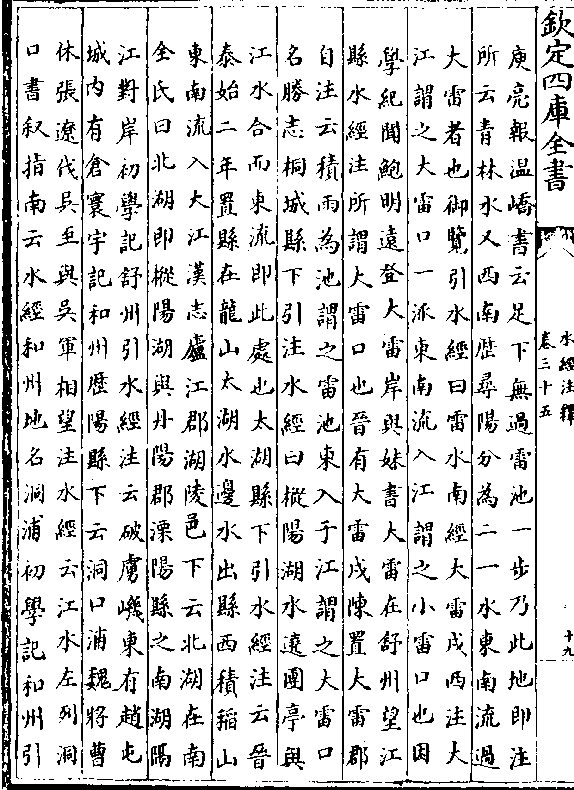 欽定四庫全書
水經注釋
卷三十五
十九
庾亮報温嶠書云足下無過雷池一步乃此地即注
所云青林水又西南歴尋陽分為二一水東南流過
大雷者也御覽引水經曰雷水南經大雷戍西注大
江謂之大雷口一派東南流入江謂之小雷口也困
學紀聞鮑明遠登大雷岸與妹書大雷在舒州望江
縣水經注所謂大雷口也晉有大雷戍陳置大雷郡
自注云積雨為池謂之雷池東入于江謂之大雷口
名勝志桐城縣下引注水經曰樅陽湖水遶團亭與
江水合而東流即此處也太湖縣下引水經注云晉
泰始二年置縣在龍山太湖水邊水出縣西積稲山
東南流入大江漢志廬江郡湖陵邑下云北湖在南
全氏曰北湖即樅陽湖與丹陽郡溧陽縣之南湖隔
江對岸初學記舒州引水經注云破虜磯東有趙屯
城内有倉寰宇記和州歴陽縣下云洞口浦魏將曹
休張遼伐吳至與吳軍相望注水經云江水左列洞
口書叙指南云水經和州地名洞浦初學記和州引